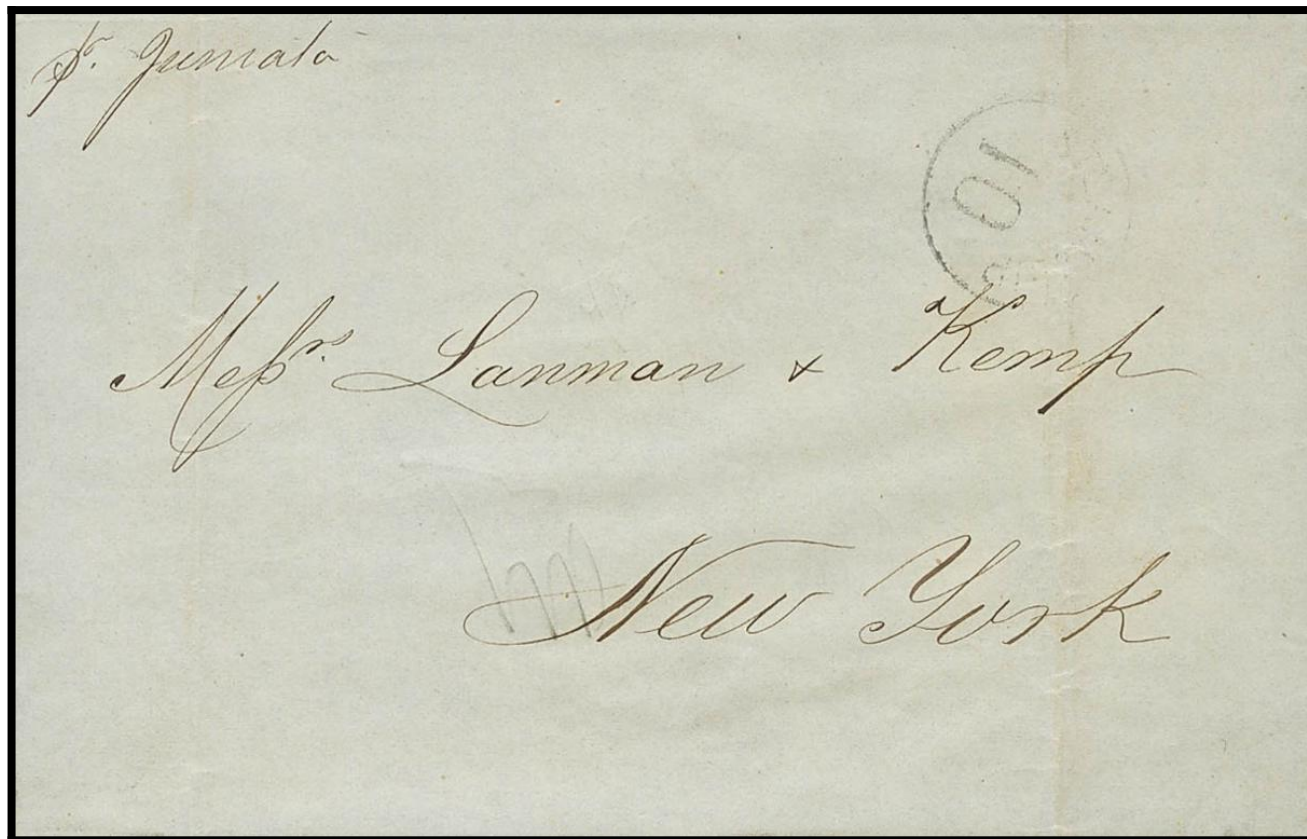 pr. Juniata
10
Messrs. Lanman & Kemp
New York